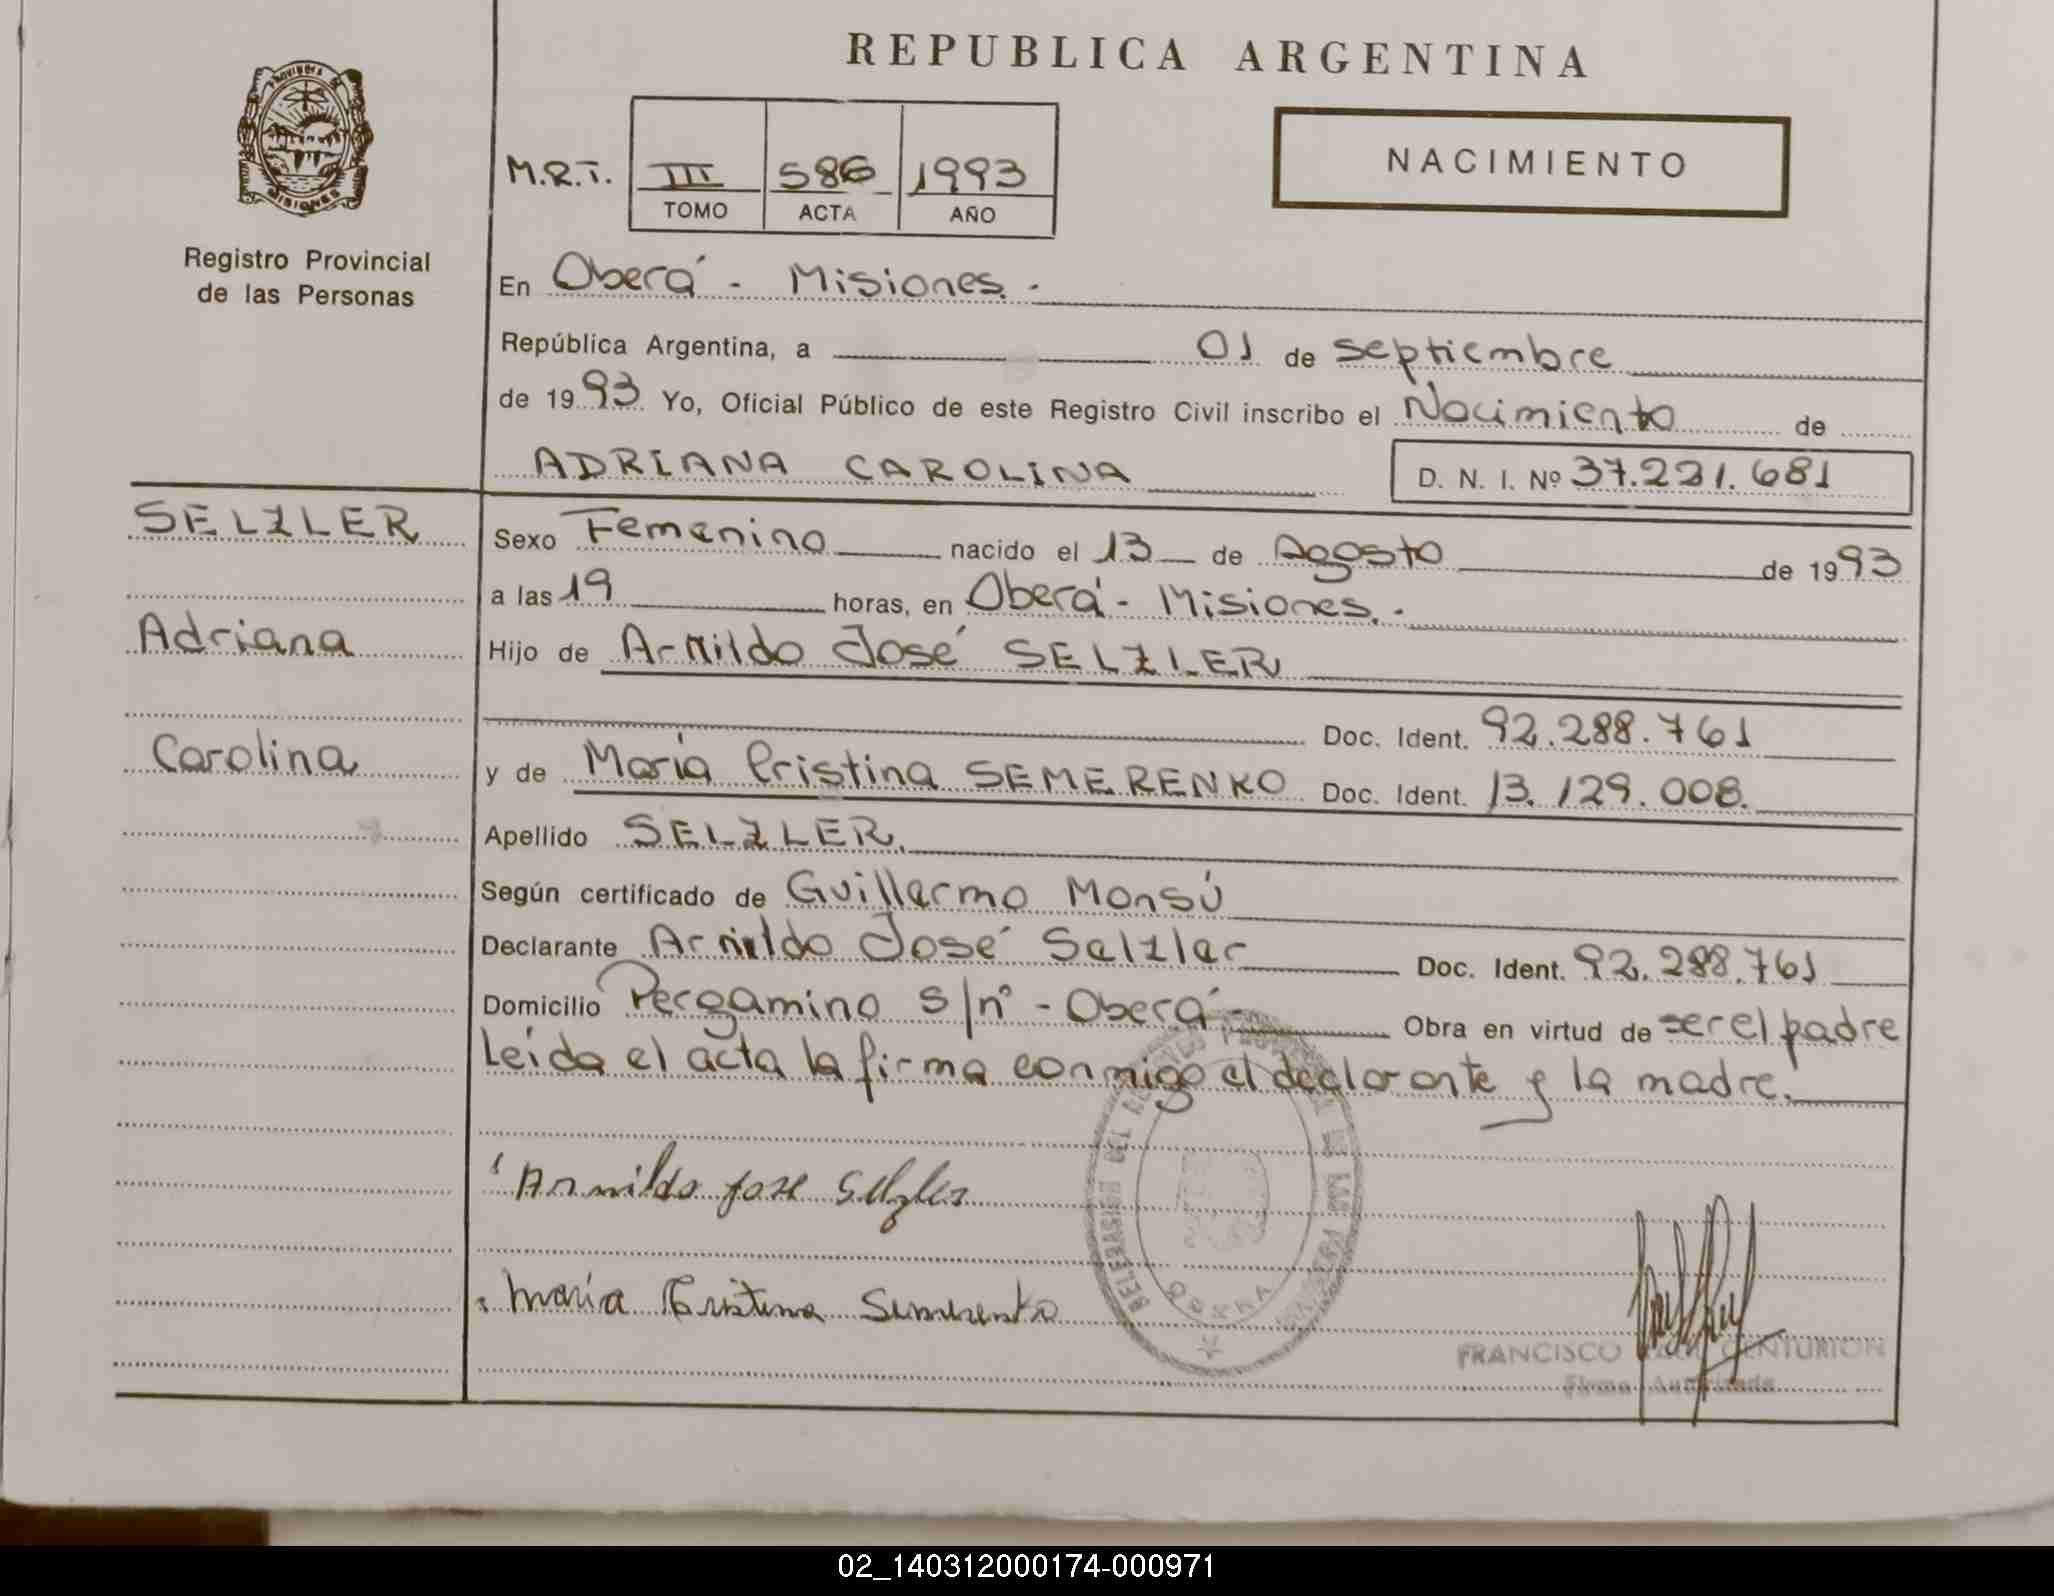 REPUBLICA ARGENTINA
PROVINCIA DE
MISIONES
Registro Provincial
de las Personas
M.R.T.
III 586 1993
TOMO ACTA AÑO
NACIMIENTO
En Oberá - Misiones.-
República Argentina, a 01 de septiembre
de 1993 Yo, Oficial Público de este Registro Civil inscribo el Nacimiento de
ADRIANA CAROLINA D. N. I. Nº 37.221.681
SELZLER
Adriana
Carolina
Sexo Femenino nacido el 13 de Agosto de 1993
a las 19 horas, en Oberá - Misiones.-
Hijo de Arnildo José SELZLER
Doc. Ident. 92.288.761
y de María Cristina SEMERENKO Doc. Ident. 13.129.008.
Apellido SELZLER.
Según certificado de Guillermo Monsú
Declarante Arnildo José Selzler Doc. Ident. 92.288.761
Domicilio Pergamino s/nº - Oberá - Obra en virtud de ser el padre
Leída el acta la firma conmigo el declarante y la madre.
Arnildo jose Selzler
María Cristina Semerenko
OBERA
FRANCISCO CENTURION
Firma Autorizada
02_140312000174-000971